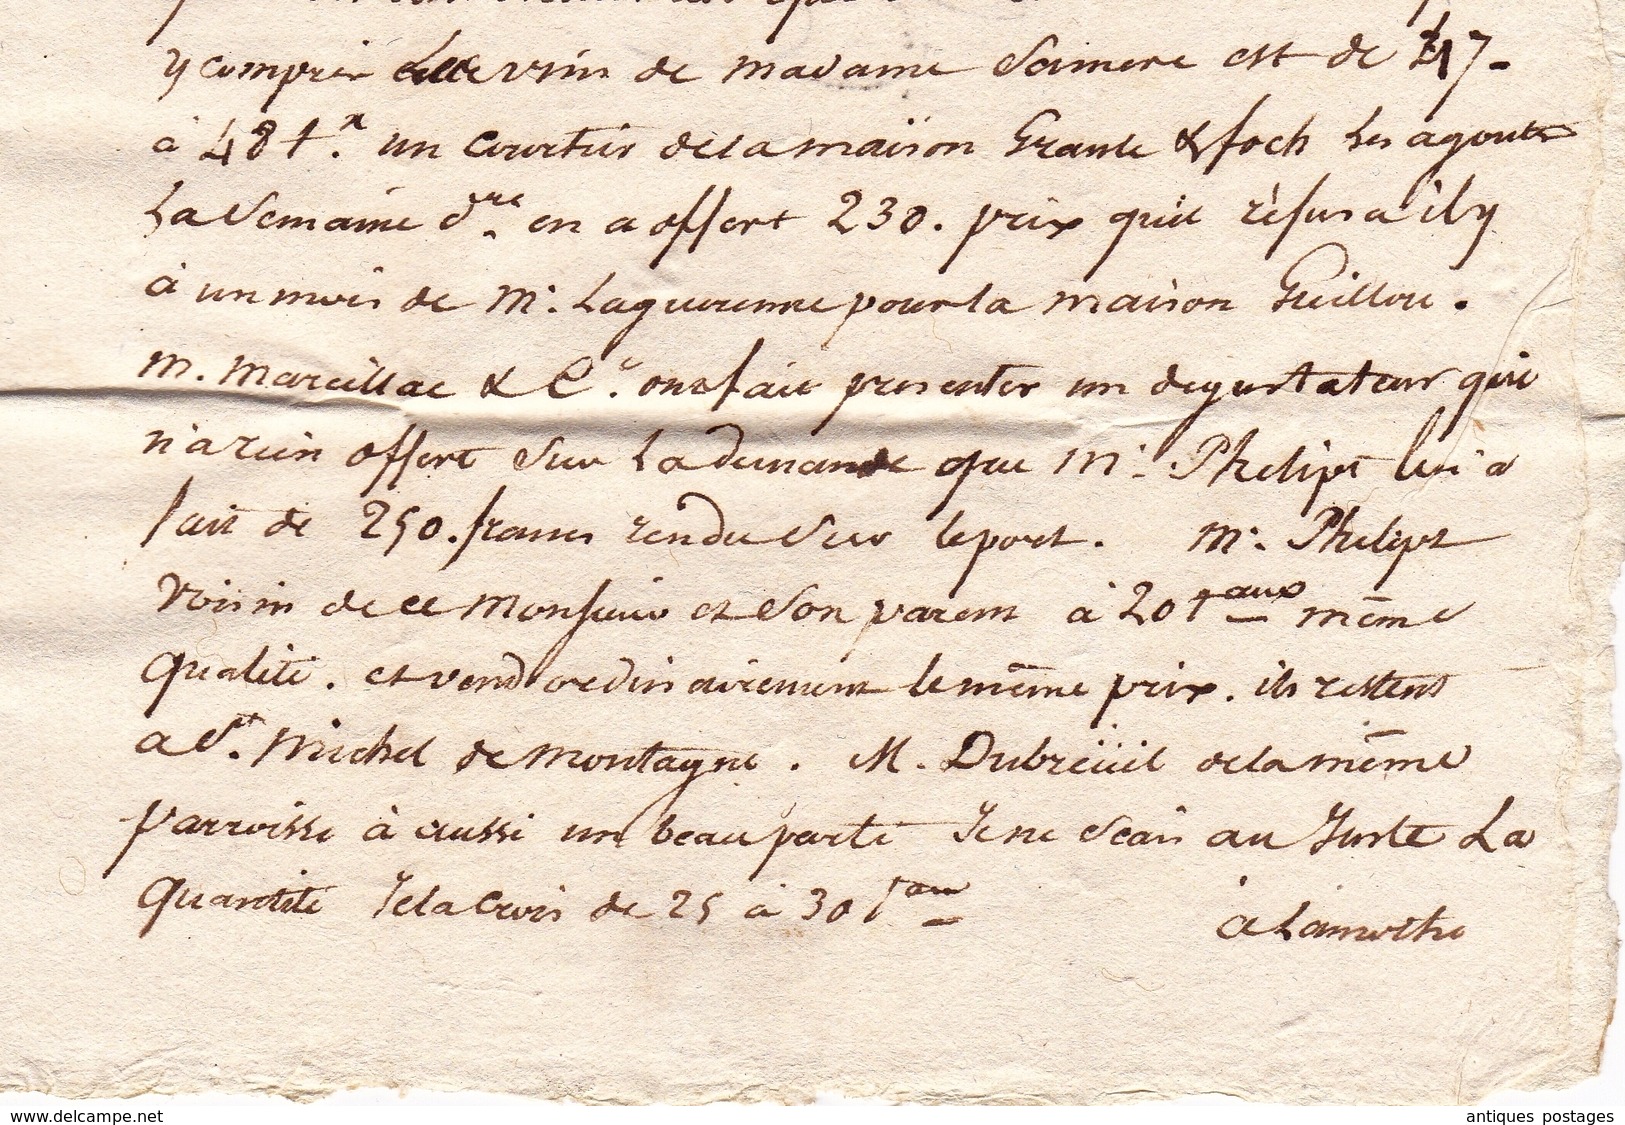 y compris le vin de madame Scimere est de 47-
à 48 tx. un courtier de la maison Grante & foch les agouté
La Semaine dre en a offert 230. prix quil réfusa il y
à un mois de Mr. Laguerenne pour la maison Guillou.
M. Mareillac & Ce. ont fait presenter un degustateur qui
n'a rien offert Sur La demande que Mr. Phelipt lui a
fait de 250. francs rendu Sur le port. Mr. Phelipt
Voisin de ce Monsieur et Son parent à 20 taux même
Qualité. et vend ordinairement le même prix. ils restent
a St. Michel de Montagne. M. Dubreüil de la même
parroisse à aussi un beau parti Je ne Scais au Juste La
Quantité Je la Crois de 25 à 30 taux
à Lamothe
www.delcampe.net
antiques postages